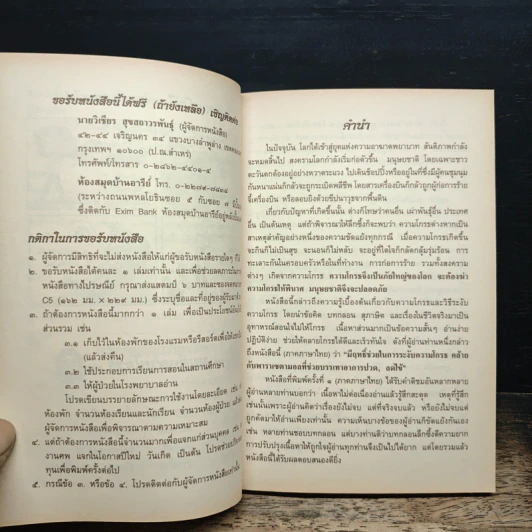 ขอรับหนังสือนี้ได้ฟรี (ถ้ายังเหลือ) เชิญติดต่อ
นายวิเชียร สุขสถาวรพันธุ์ (ผู้จัดการหนังสือ)
๔๒-๔๔ เจริญนคร ๓๔ แขวงบางลำพูล่าง
กรุงเทพฯ ๑๐๖๐๐ (ป.ณ.สำเหร่)
โทรศัพท์/โทรสาร
ห้องสมุดบ้านอารีย์ โทร.
(ระหว่างถนนพหลโยธินซอย ๕ กับซอย ๗
ซึ่งติดกับ Exim Bank ห้องสมุดบ้านอารีย์อยู่
กติกาในการขอรับหนังสือ
๑. ผู้จัดการมีสิทธิที่จะไม่ส่งหนังสือให้แก่ผู้ขอหนังสือรายใด ๆ ก็ได้
๒. ขอรับหนังสือได้คนละ ๑ เล่มเท่านั้น และเพื่อช่วยลด
หนังสือทางไปรษณีย์ กรุณาส่งแสตมป์ ๖ บาทและซอง
C5 (๑๖๒ มม. X ๒๒๙ มม.) ซึ่งระบุชื่อและที่อยู่ของผู้รับ
๓. ถ้าต้องการหนังสือนี้มากกว่า ๑ เล่ม เพื่อเป็นประโยชน์
ส่วนรวม เช่น
๓.๑ เก็บไว้ในห้องพักของโรงแรมหรือรีสอร์ตเพื่อให้
(แล้วส่งคืน)
๓.๒ ใช้ประกอบการเรียนการสอนในสถานศึกษา
๓.๓ ให้ผู้ป่วยในโรงพยาบาลอ่าน
โปรดเขียนบรรยายลักษณะการใช้งานโดยละเอียด เช่น
ห้องพัก จำนวนห้องเรียนและนักเรียน จำนวนห้องผู้ป่วย
หนังสือเพื่อผู้จัดการพิจารณาตามความเหมาะสม
๔. แต่ถ้าต้องการหนังสือนี้จำนวนมากเพื่อแจกแก่ส่วนบุคคล เช่น
งานศพ แจกในโอกาสปีใหม่ วันเกิด เป็นต้น โปรดช่วย
ทุนเพื่อพิมพ์ครั้งต่อไป
๕. กรณีข้อ ๓. หรือข้อ ๔. โปรดติดต่อกับผู้จัดการหนังสือเท่านั้น
คำนำ
ในปัจจุบัน โลกได้เข้าสู่ยุคแห่งความอาฆาตพยาบาท สันติภาพกำลัง
จะหมดสิ้นไป สงครามโลกกำลังเริ่มก่อตัวขึ้น มนุษยชาติ โดยเฉพาะชาว
ตะวันตกกำลังอยู่อย่างหวาดระแวง ไปเดินช้อปปิ้งหรืออยู่ในที่ซึ่งมีผู้คนชุมนุม
กันหนาแน่นก็กลัวจะถูกระเบิดพลีชีพ โดยสารเครื่องบินก็กลัวถูกผู้ก่อการร้าย
จี้เครื่องบิน หรือลอบยิงด้วยขีปนาวุธจากพื้นดิน
เกี่ยวกับปัญหาที่เกิดขึ้นนั้น ต่างก็โทษว่าคนอื่น เผ่าพันธุ์อื่น ประเทศ
อื่น เป็นต้นเหตุ แต่ถ้าพิจารณาให้ลึกซึ้งก็จะพบว่า ความโกรธต่างหากเป็น
สาเหตุสำคัญอย่างหนึ่งของความขัดแย้งทุกกรณี เมื่อความโกรธเกิดขึ้น
คนก็ไม่เป็นสุข จะนอนก็ไม่หลับ จะอยู่ที่ใดใจก็กลัดกลุ้มรุ่มร้อน การ
ทะเลาะกันในครอบครัวหรือในที่ทำงาน การก่อการร้าย รวมทั้งสงคราม
ต่าง ๆ เกิดจากความโกรธ ความโกรธจึงเป็นภัยใหญ่ของโลก จะต้องฆ่า
ความโกรธให้พินาศ มนุษยชาติจึงจะปลอดภัย
หนังสือนี้กล่าวถึงความรู้เบื้องต้นเกี่ยวกับความโกรธและวิธีระงับ
ความโกรธ โดยนำข้อคิด บทกลอน สุภาษิต และเรื่องในชีวิตจริงมาเป็น
อุทาหรณ์สอนใจไม่ให้โกรธ เนื้อหาส่วนมากเป็นข้อความสั้นๆ อ่านง่าย
ปฏิบัติง่าย ช่วยให้คลายโกรธได้ดีและเร็วทันใจ ดังที่ผู้อ่านท่านหนึ่งกล่าว
ถึงหนังสือนี้ (ภาคภาษาไทย) ว่า "มีฤทธิ์ช่วยในการระงับความโกรธ คล้าย
กับพาราเซตามอลที่ช่วยบรรเทาอาการปวด, ลดไข้"
หนังสือที่พิมพ์ครั้งที่ ๑ (ภาคภาษาไทย) ได้รับคำติชมอันหลากหลาย
ผู้อ่านหลายท่านบอกว่า เนื้อหาไม่ค่อยเน้นอ่านแล้วรู้สึกสะดุด เหตุที่รู้สึก
เช่นนั้นเพราะผู้อ่านคิดว่าเรื่องยังไม่จบ แต่ที่จริงจบแล้ว หรือยังไม่จบแต่
ถูกคัดมาให้อ่านเพียงเท่านั้น ความเห็นบางข้อของผู้อ่านก็ขัดแย้งกันเอง
เช่น หลายท่านชอบบทกลอน แต่บางท่านติว่าบทกลอนลึกซึ้งตีความยาก
การปรับปรุงเนื้อหาให้ถูกใจผู้อ่านทุกท่านจึงเป็นไปได้ยาก แต่โดยรวมแล้ว
หนังสือนี้ได้รับผลตอบสนองดียิ่ง